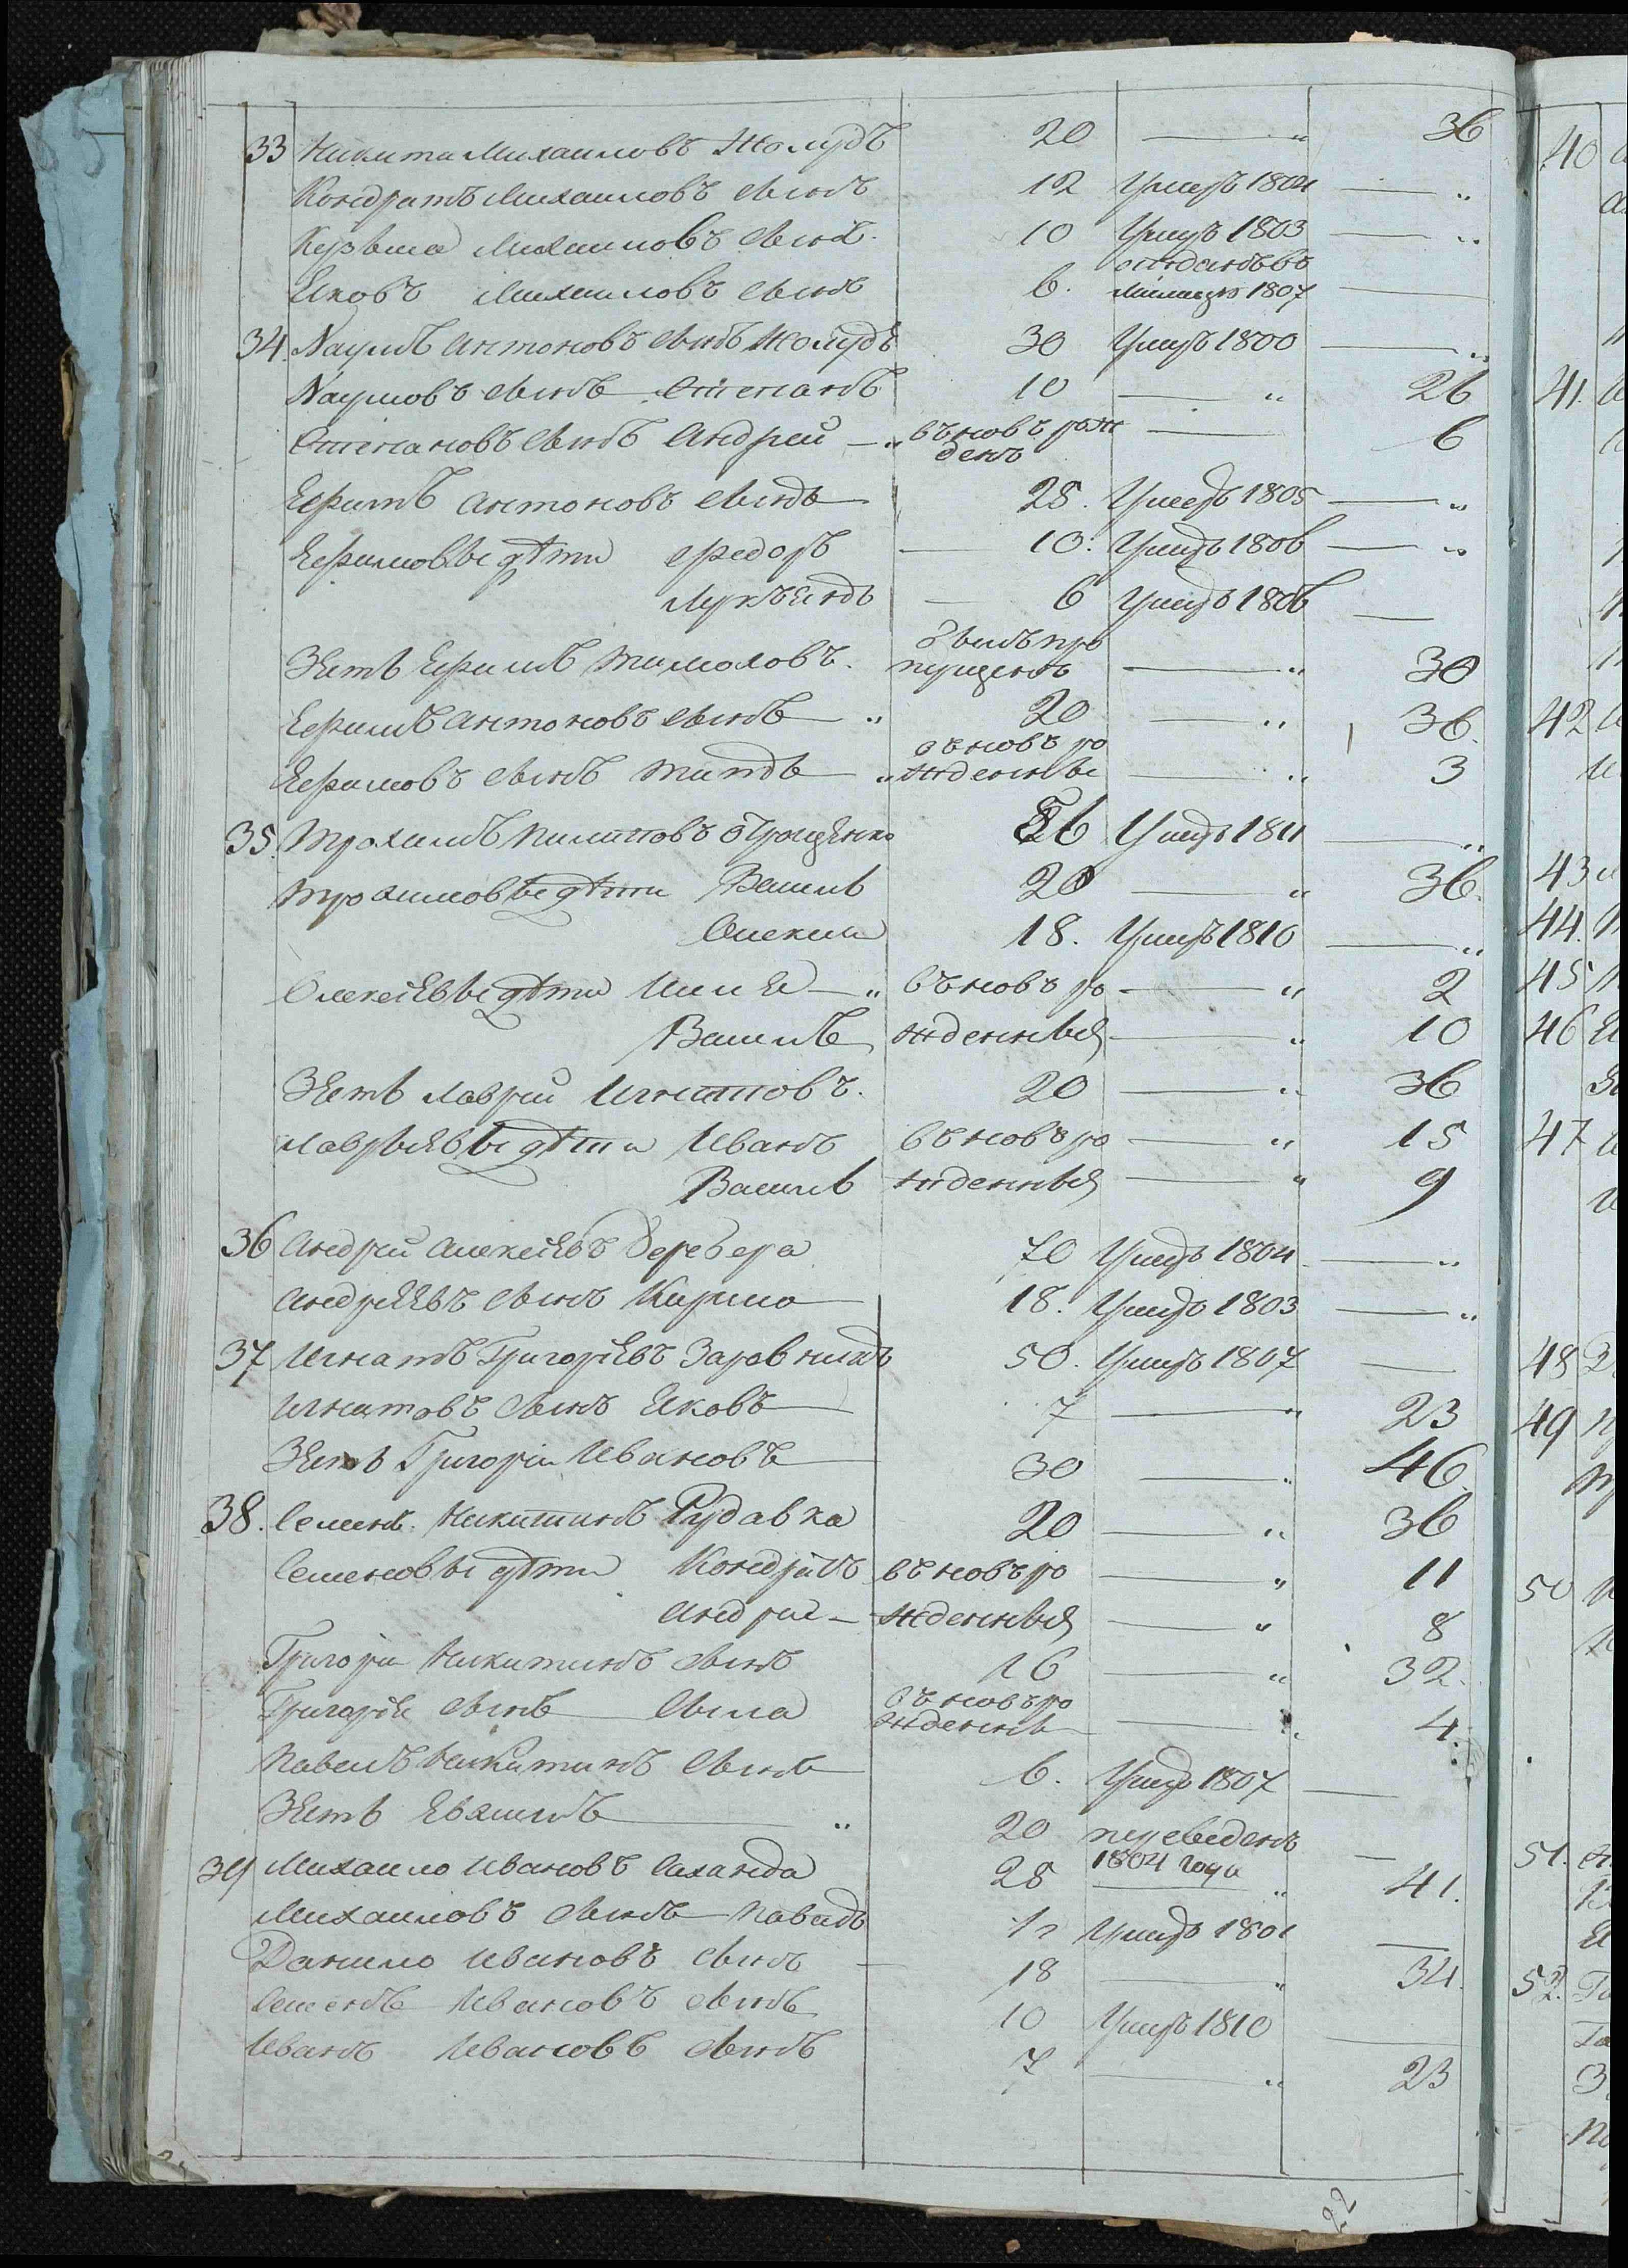 33 Никита Михаиловъ Жолудъ 20 — „ 36
Кондратъ Михаиловъ сынъ 12 Умеръ 1804 — „
Курьма Михаиловъ сынъ 10 Умеръ 1803 — „
Яковъ Михаиловъ сынъ 6. отданъ въ милицiю 1807 —
34. Наумъ Антоновъ сынъ Жолудъ 30 Умеръ 1800 — „
Наумовъ сынъ Степанъ 10 — „ 26
Степановъ сынъ Андрей — „ въновь рожденъ — 6
Ефимъ Антоновъ сынъ 28. Умеръ 1805 — „
Ефимовы дѣти Федоръ — 10. Умеръ 1806 — „
Лукъянъ — 6 Умеръ 1806 —
Зять Ефимъ Тимоховъ. былъ пропущенъ — „ 30
Ефимъ Антоновъ сынъ — „ 20 — „ 36.
Ефимовъ сынъ Титъ — „ въновъ рожденны — „ 3
35. Трохимъ Пилиповъ 56 Умеръ 1811 — „
Трохимовы дѣти Василь 20 — „ 36.
Олексий 18. Умеръ 1810 — „
Олексѣевы дѣти Илия — „ въновъ ро — „ 2
Василь жденныя — „ 10
Зять Лаврѣй Игнатовъ. 20 — „ 36
Лаврѣевы дѣти Иванъ въновъ ро — „ 15
Василь жденныя — „ 9
36 Андрей Алексѣевъ Деревера 70 Умеръ 1804 — „
Андрѣевъ сынъ Кирило 18. Умеръ 1803 — „
37 Игнатъ Григорѣевъ Заровний 50. Умеръ 1807 —
Игнатовъ сынъ Яковъ 7 — „ 23
Зять Григорiй Ивановъ 30 — „ 46.
38. Семенъ Никитинъ Рудавка 20 — „ 36
Семеновы дѣти Кондратъ въновъ ро — „ 11
Андрий — жденныя — „ 8
Григорiй Никитинъ сынъ 16 — „ 32.
Григорiя сынъ въновъ рожденны — „ 4.
Павелъ Никитинъ сынъ 6. Умеръ 1807 —
Зять Евхимъ — „ 20 переведенъ 1804 года —
39 Михаило Ивановъ Саханда 25 — „ 41.
Михаиловъ сынъ Павелъ Умеръ 1801 —
Данило Ивановъ сынъ — 18 — „ 34.
Семенъ Ивановъ сынъ 10 Умеръ 1810 —
Иванъ Ивановъ сынъ 7 — „ 23
22
40
41.
42
43
44.
45
46
47
48
49
50
51.
52.